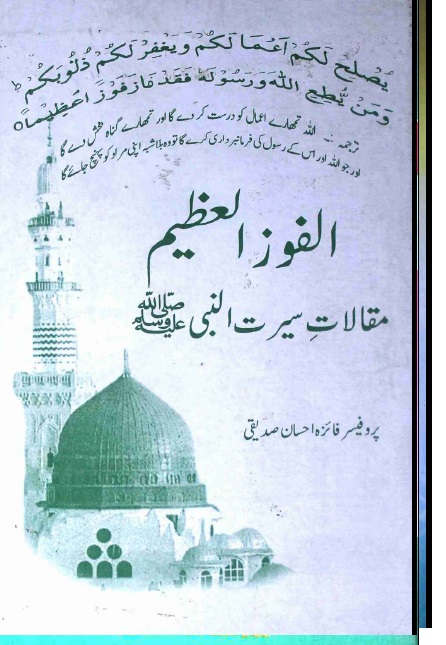 يُصْلِحْ لَكُمْ اَعْمَا لَكُمْ وَيَغْفِرْ لَكُمْ ذُنُوْبَكُمْ ط
وَمَنْ يُّطِعِ اللهَ وَرَسُوْلَهٗ فَقَدْ فَازَ فَوْزً اعَظِيْمًا ○
ترجمہ :۔ اللہ تمھارے اعمال کو درست کر دے گا اور تمھارے گناہ بخش دے گا
اور جو اللہ اور اس کے رسول کی فرمانبرداری کرے گا تو وہ بلاشبہ اپنی مراد کو پہنچ جائے گا
الفوز العظیم
مقالاتِ سیرت النبی ﷺ
پروفیسر فائزہ احسان صدیقی